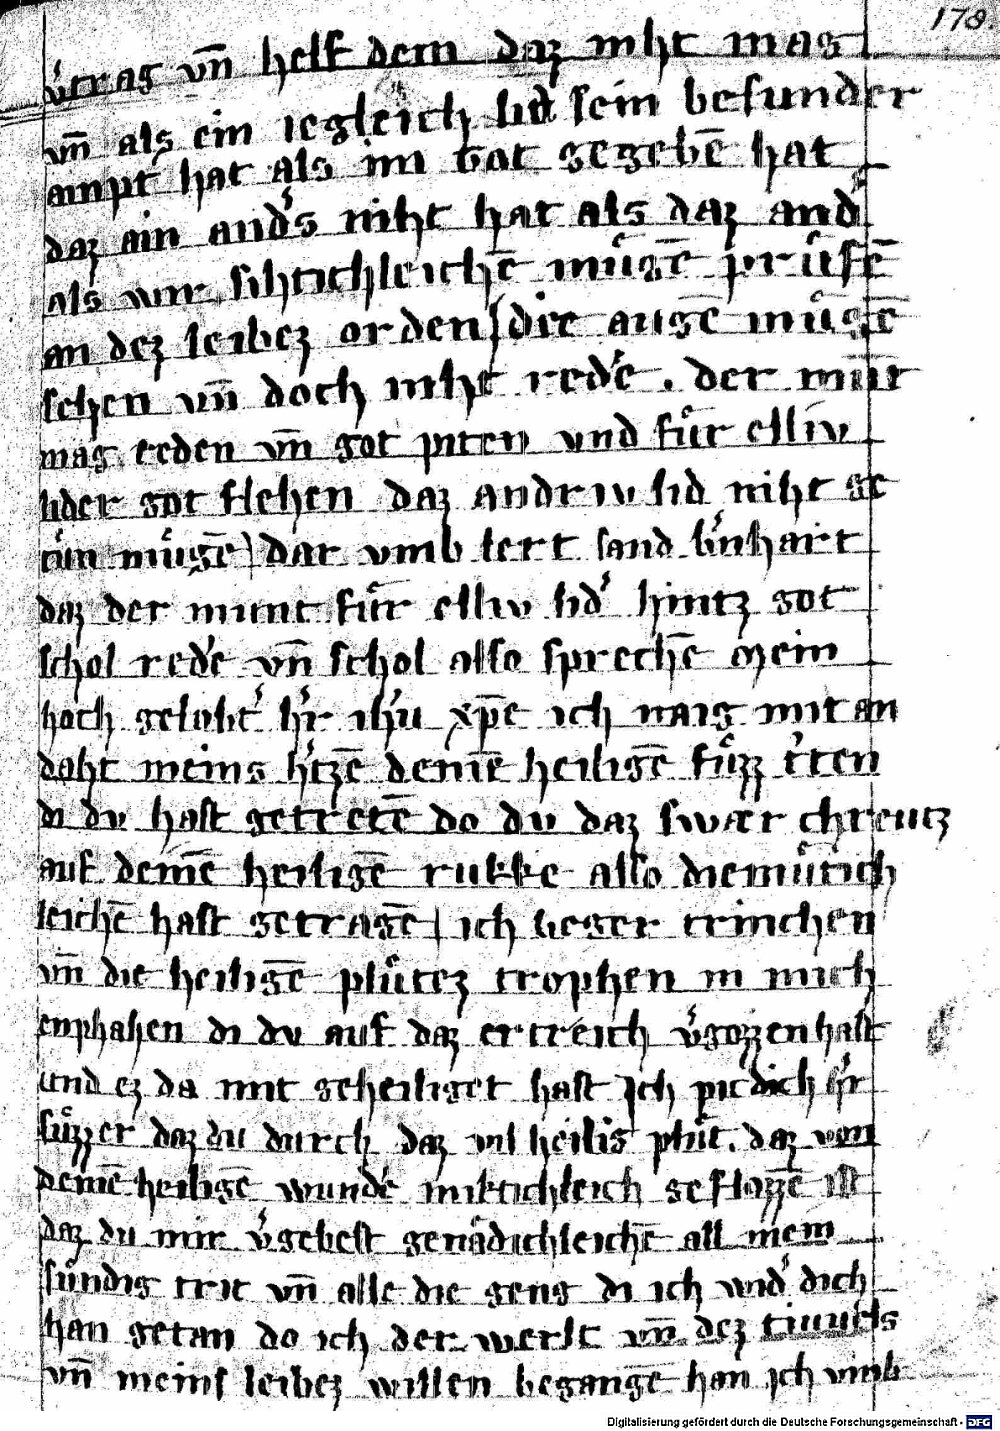 178.
v̾trag vn̄ helf dem daz niht mag
vn̄ als ein iegleich lid sein besunder
ampt hat als im Got gegebē hat
daz ain and̾s niht hat als daz and̾
als wir sihtichleichē mu̽gē pru̽fē
an dez leibez orden die augē mu̽gē
sehen vn̄ doch niht red̾e . der mu̅t
mag reden vn̄ got piten vnd fu̽r elliv
lider got flehen daz andriv lid niht ge
tu̽n mu̽gē dar vmb lert sand b̾nhart
daz der munt fu̽r elliv lid̾ hintz got
schol red̾e vn̄ schol also sprechē Mein
hoch gelobt̾ h̾r ih̾u xp̄e ich naig mit an
daht meins h̾tzē deinē heiligē fu̽zz t̾ten
di du hast getretē do du daz swaer chreutz
auf deinē heiligē rukke also diemu̽tich
leichē hast getragē ich beger trinchen
vn̄ die heiligē plu̽tez trophen in mich
enphahen di du auf daz ertreich v̾gozzen hast
und ez da mit geheiliget hast Ich pit dich h̾r
su̽zzer daz du durch daz vil heilig plu̽t . daz von
deinē heiligē wund̾e miltichleich geflozzē ist
daz du mir v̾gebest genädichleichē all mein
su̽ndig trit vn̄ alle die geng di ich wid̾ dich
han getan do ich der werlt vn̄ dez tiuuels
vn̄ meins leibez willen begangē han ich vmb
Digitalisierung gefördert durch die Deutsche Forschungsgemeinschaft - DFG